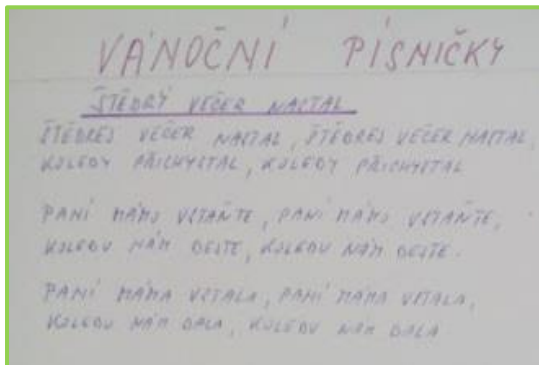 VÁNOČNÍ PÍSNIČKY
ŠTĚDRÝ VEČER NASTAL
ŠTĚDREJ VEČER NASTAL, ŠTĚDREJ VEČER NASTAL,
KOLEDY PŘICHYSTAL, KOLEDY PŘICHYSTAL
PANÍ MÁMO VSTAŇTE, PANÍ MÁMO VSTAŇTE,
KOLEDU NÁM DEJTE, KOLEDU NÁM DEJTE.
PANÍ MÁMA VSTALA, PANÍ MÁMA VSTALA,
KOLEDU NÁM DALA, KOLEDU NÁM DALA